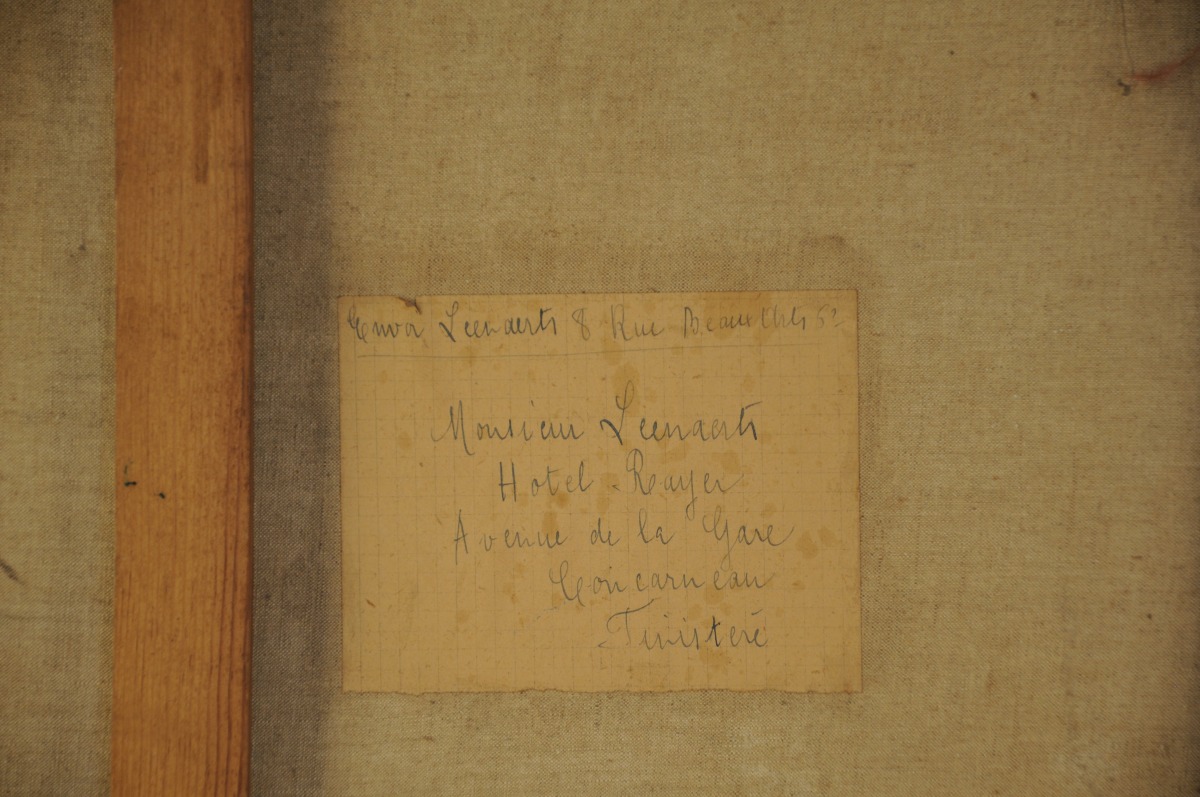 Envoi Leenaerts 8 Rue Beaux Arts
Monsieur Leenaerts
Hotel Rayer
Avenue de la Gare
Concarneau
Finistere